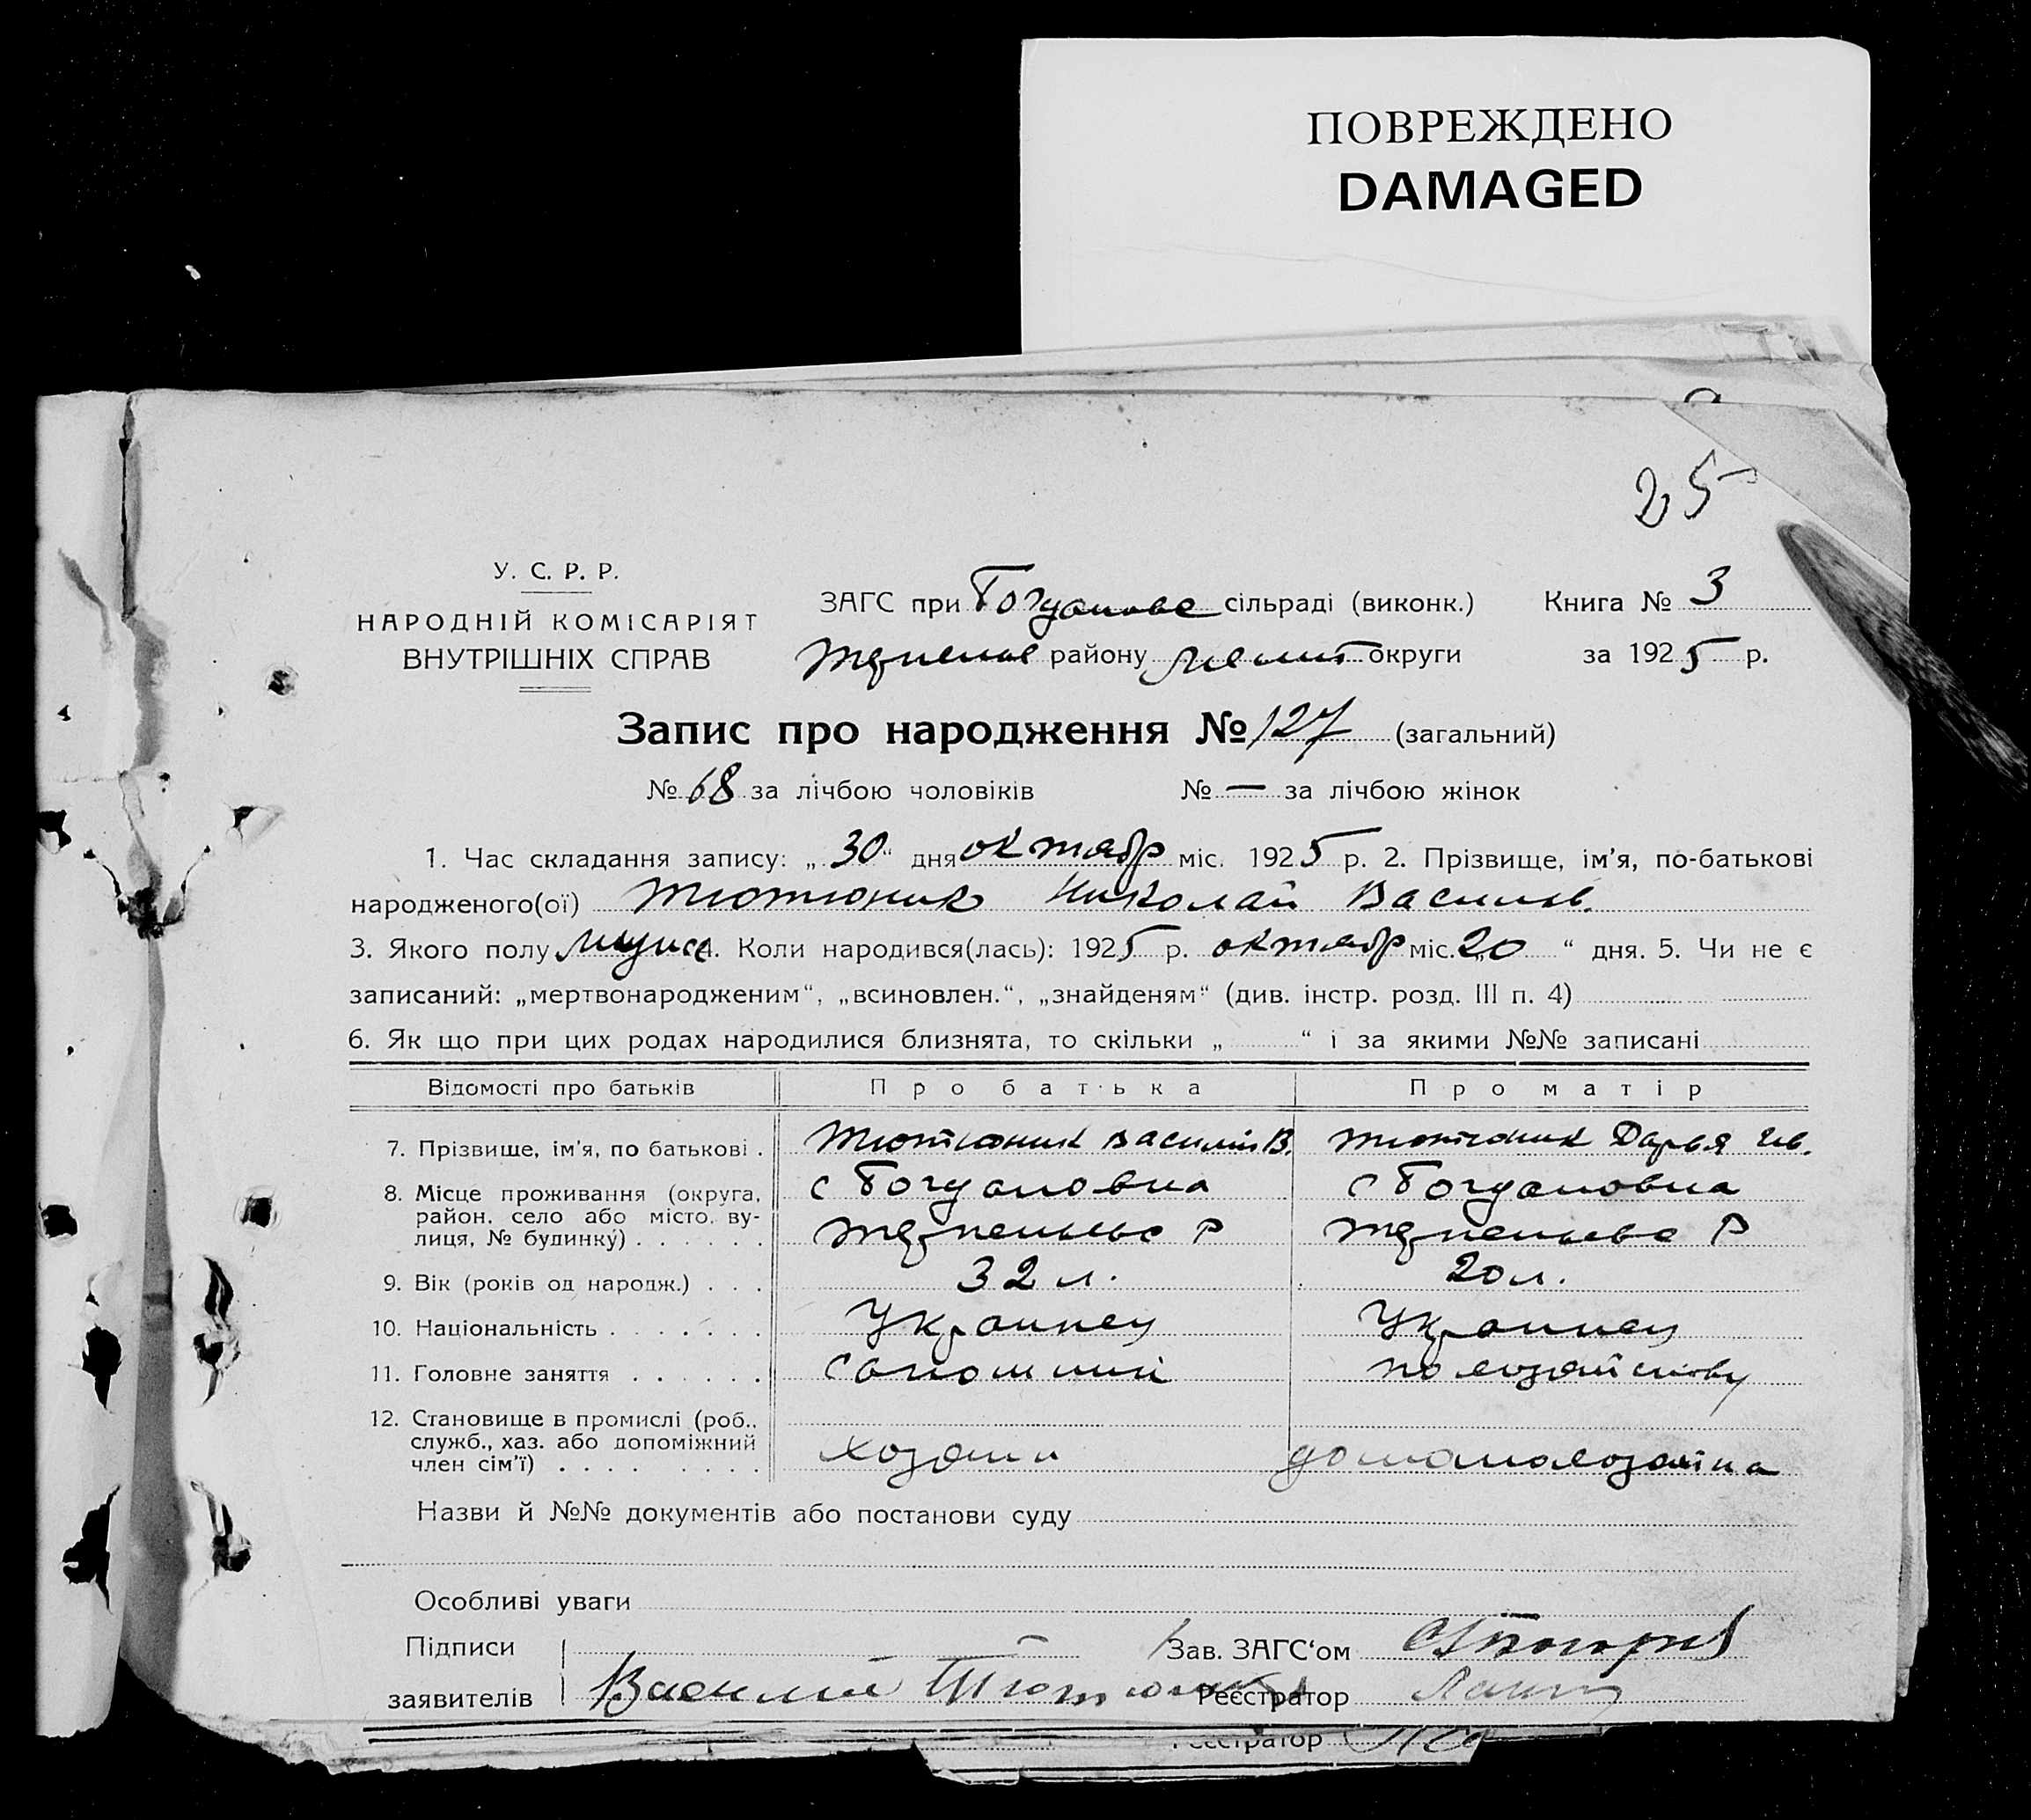 ПОВРЕЖДЕНО
DAMAGED
25
У. С. Р. Р.
НАРОДНІЙ КОМІСАРІЯТ
ВНУТРІШНІХ СПРАВ
ЗАГС при Богданове сільраді (виконк.) Книга № 3
району округи за 1925 р.
Запис про народження № 127 (загальний)
№ 68 за лічбою чоловіків № — за лічбою жінок
1. Час складання запису: „ 30 “ дня октябр міс. 1925 р. 2. Прізвище, ім’я, по-батькові
народженого(ої) Тютюник Николай Васильв.
3. Якого полу мужс 4. Коли народився(лась): 1925 р. октябр міс. „20 “ дня. 5. Чи не є
записаний: „мертвонародженим“, „всиновлен.“, „знайденям“ (див. інстр. розд. III п. 4)
6. Як що при цих родах народилися близнята, то скільки „ “ і за якими №№ записані
Відомості про батьків Про батька Про матір
7. Прізвище, ім’я, по батькові . Тютюник Василий В. Тютюник Дарья Ив.
8. Місце проживання (округа, с Богдановка с Богдановка
район, село або місто, ву-
лиця, № будинку) . . . . . . Р Р
9. Вік (років од народж.) . . . 32 л. 20 л.
10. Національність . . . . . . . Украинец Украинец
11. Головне заняття . . . . . . по хозяйству
12. Становище в промислі (роб.,
служб., хаз. або допоміжний
член сім’ї) . . . . . . . . хозяин домохозяйка
Назви й №№ документів або постанови суду
Особливі уваги
Підписи Зав. ЗАГС‘ом
заявителів Василий Тютюник Реєстратор
Реєстратор